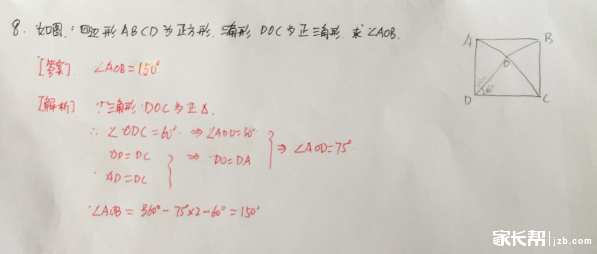 8. 如图,四边形ABCD为正方形,三角形DOC为正三角形,求∠AOB.
A B
O
D C
[答案] ∠AOB=150°
[解析] ∵三角形DOC为正△.
∴∠ODC=60° ⇒∠ADO=30°
OD=DC ⇒ DO=DA ⇒∠AOD=75°
AD=DC
∴∠AOB=360°-75°×2-60°=150°
家长帮 jzb.com